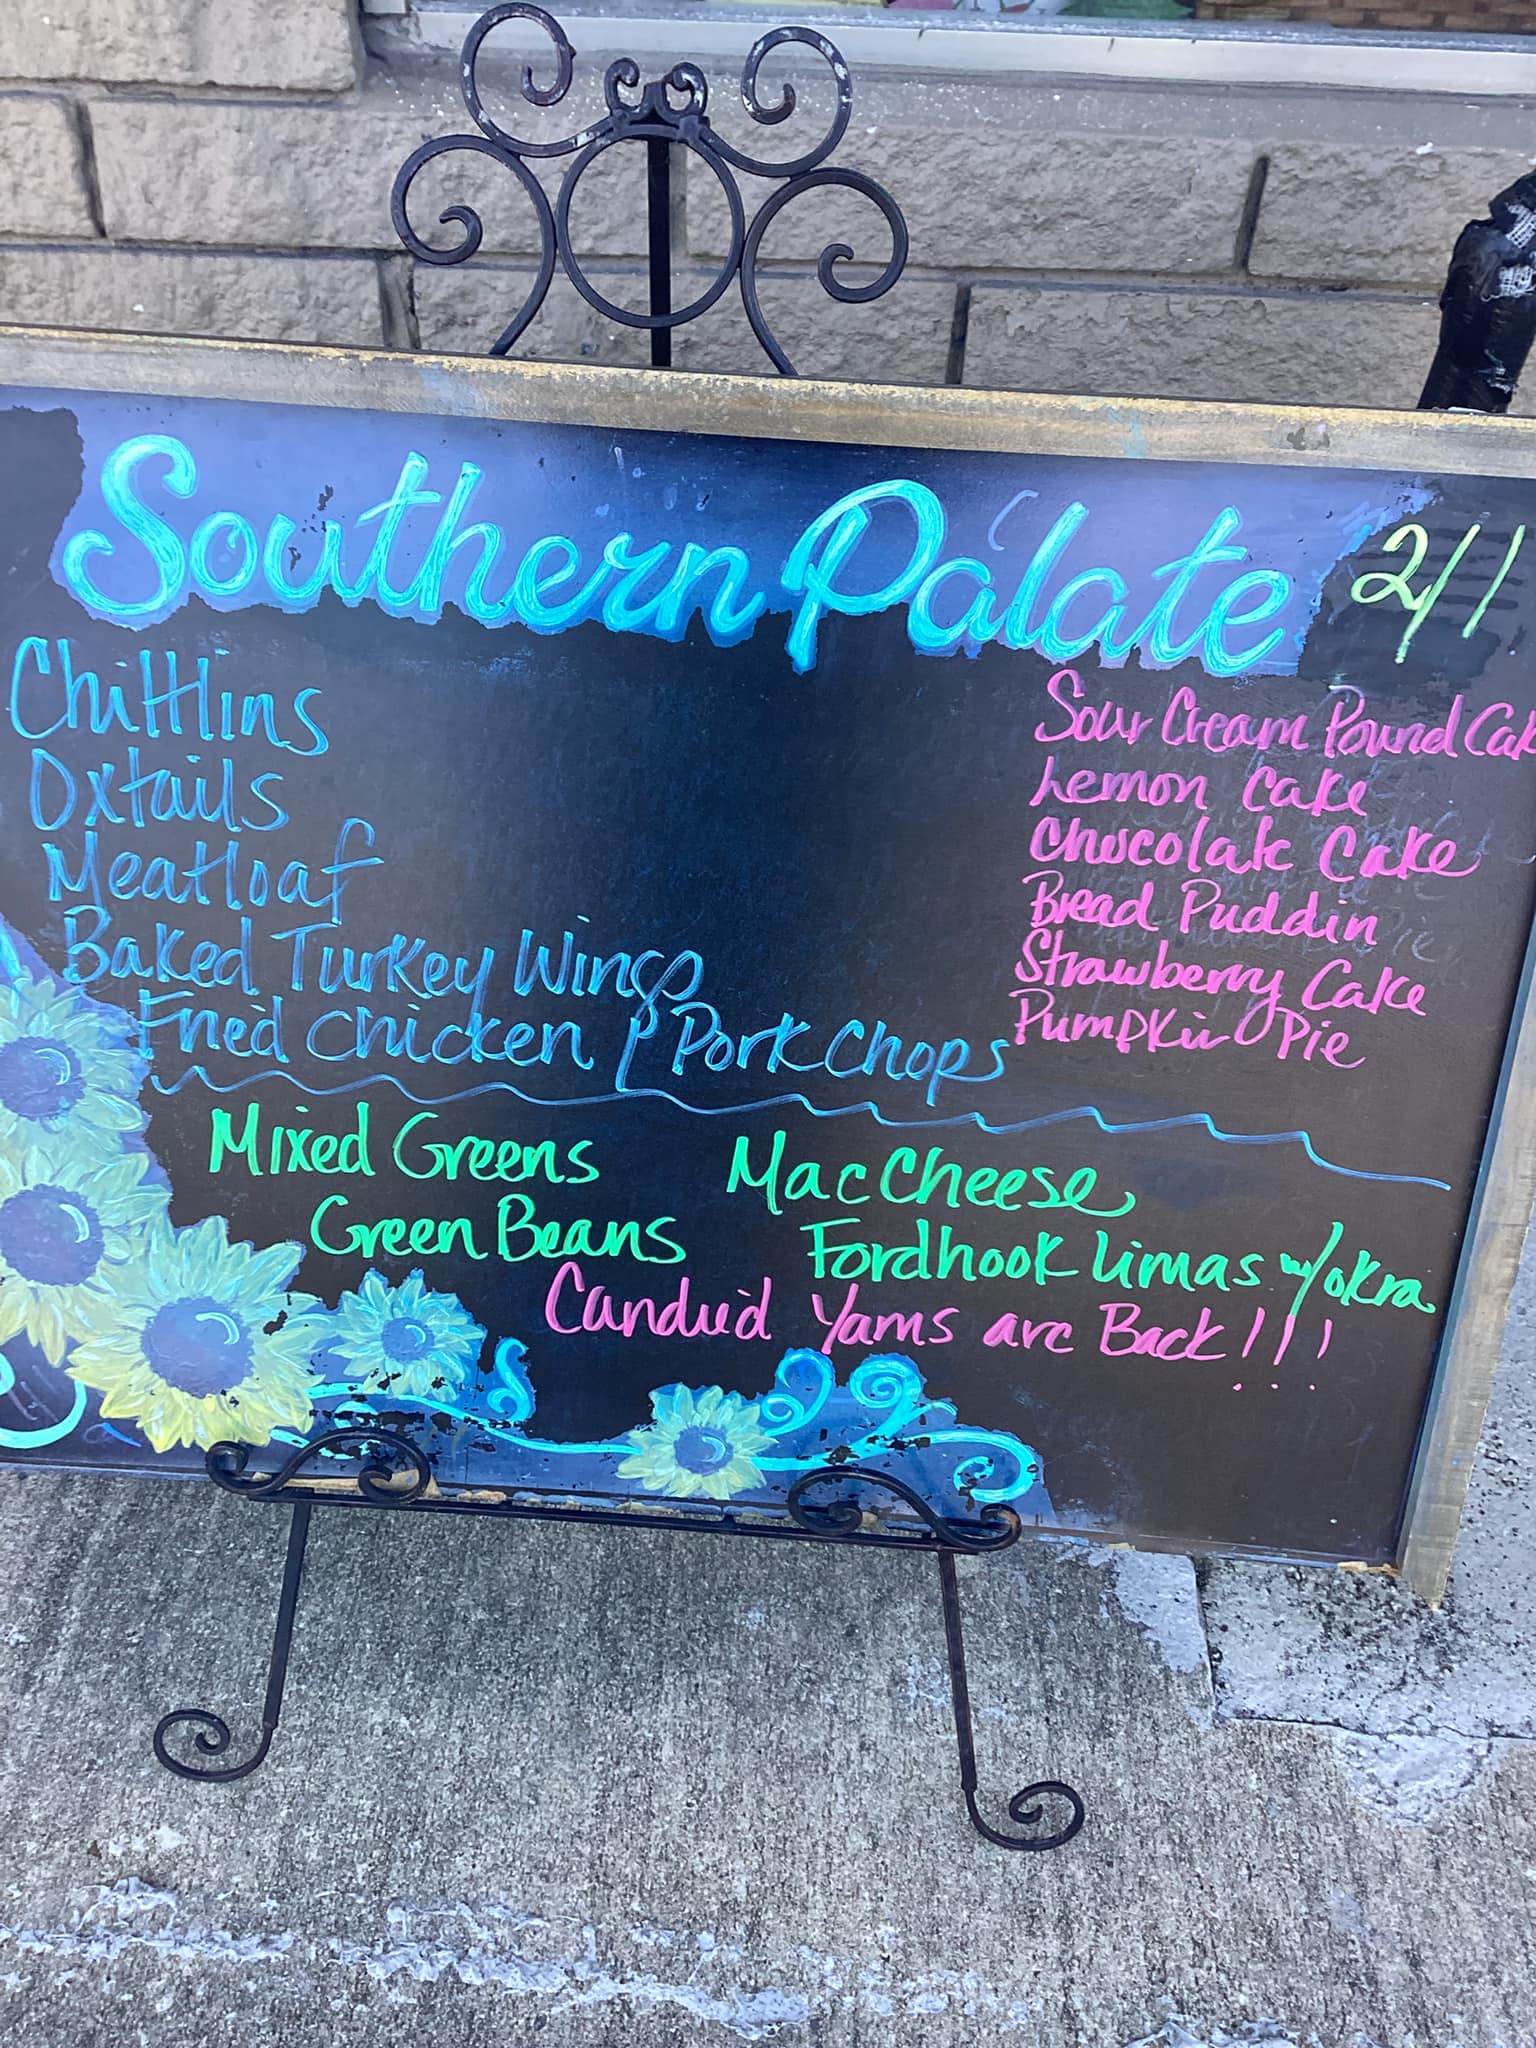 Southern Palate 2/1
Chittlins
Oxtails
Meatloaf
Baked Turkey Wings
Fried Chicken / Pork Chops
Sour Cream Pound Cak
Lemon Cake
Chocolate Cake
Bread Puddin
Strawberry Cake
Pumpkin Pie
Mixed Greens
Green Beans
Mac Cheese
Fordhook Limas w/okra
Candied Yams are Back!!!